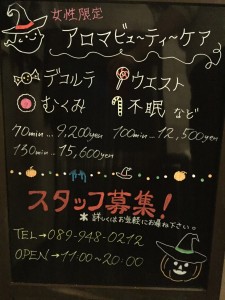 女性限定
アロマビューティーケア
デコルテ ウエスト
むくみ 不眠 など
70min...9,200yen 100min...12,500yen
130min...15,600yen
スタッフ募集!
*詳しくはお気軽にお尋ね下さい。
TEL→089-948-0212
OPEN→11:00~20:00